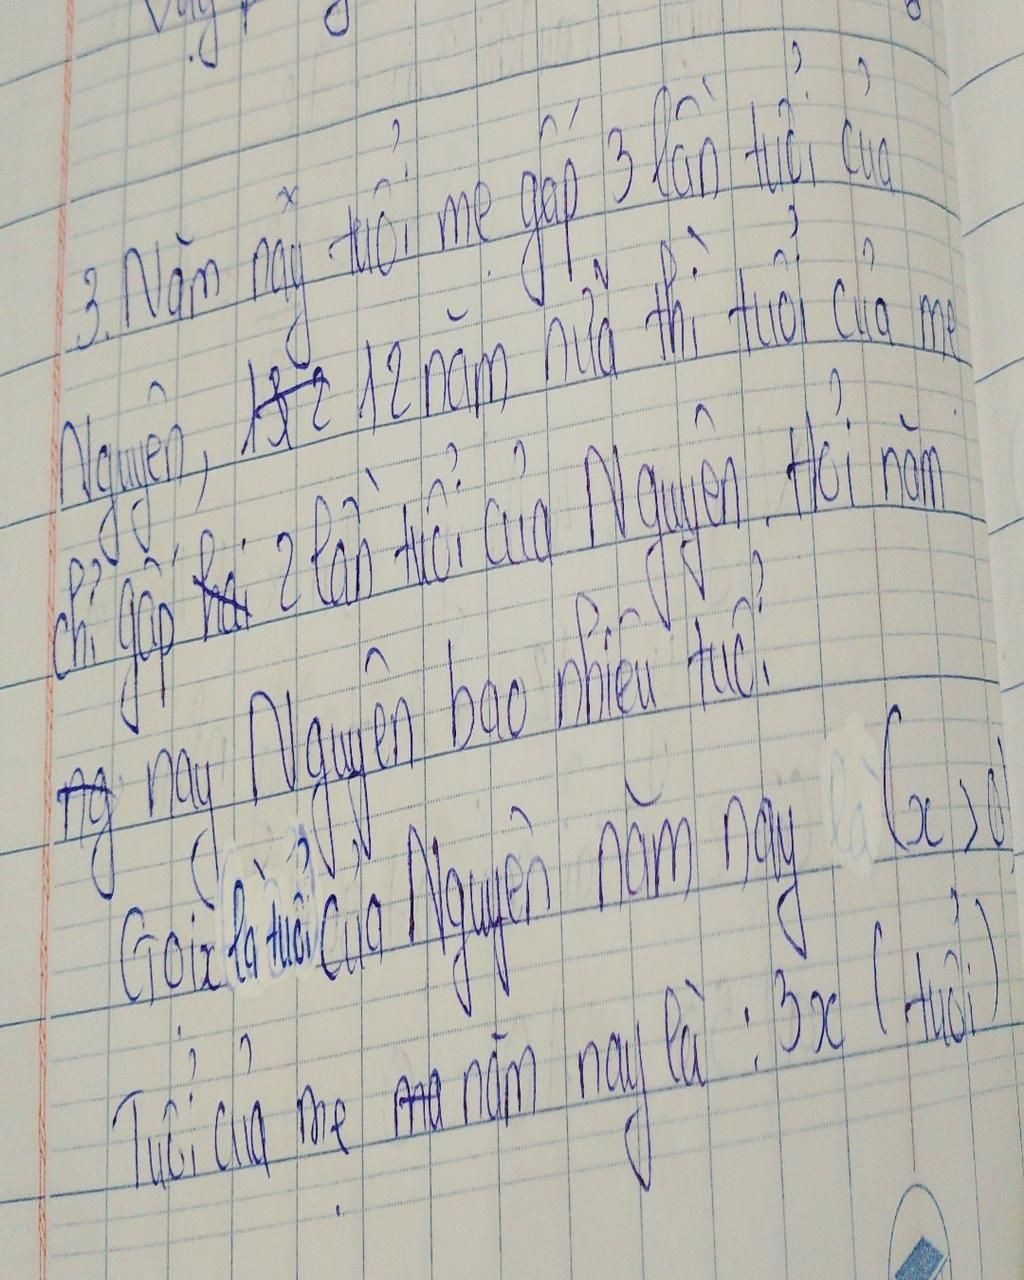 3. Năm nay tuổi mẹ gấp 3 lần tuổi của
Nguyên, 12 năm nữa thì tuổi của mẹ
chỉ gấp 2 lần tuổi của Nguyên. Hỏi năm
nay Nguyên bao nhiêu tuổi.
Gọi x là tuổi của Nguyên năm nay là (x > 0
Tuổi của mẹ năm nay là : 3x (tuổi)